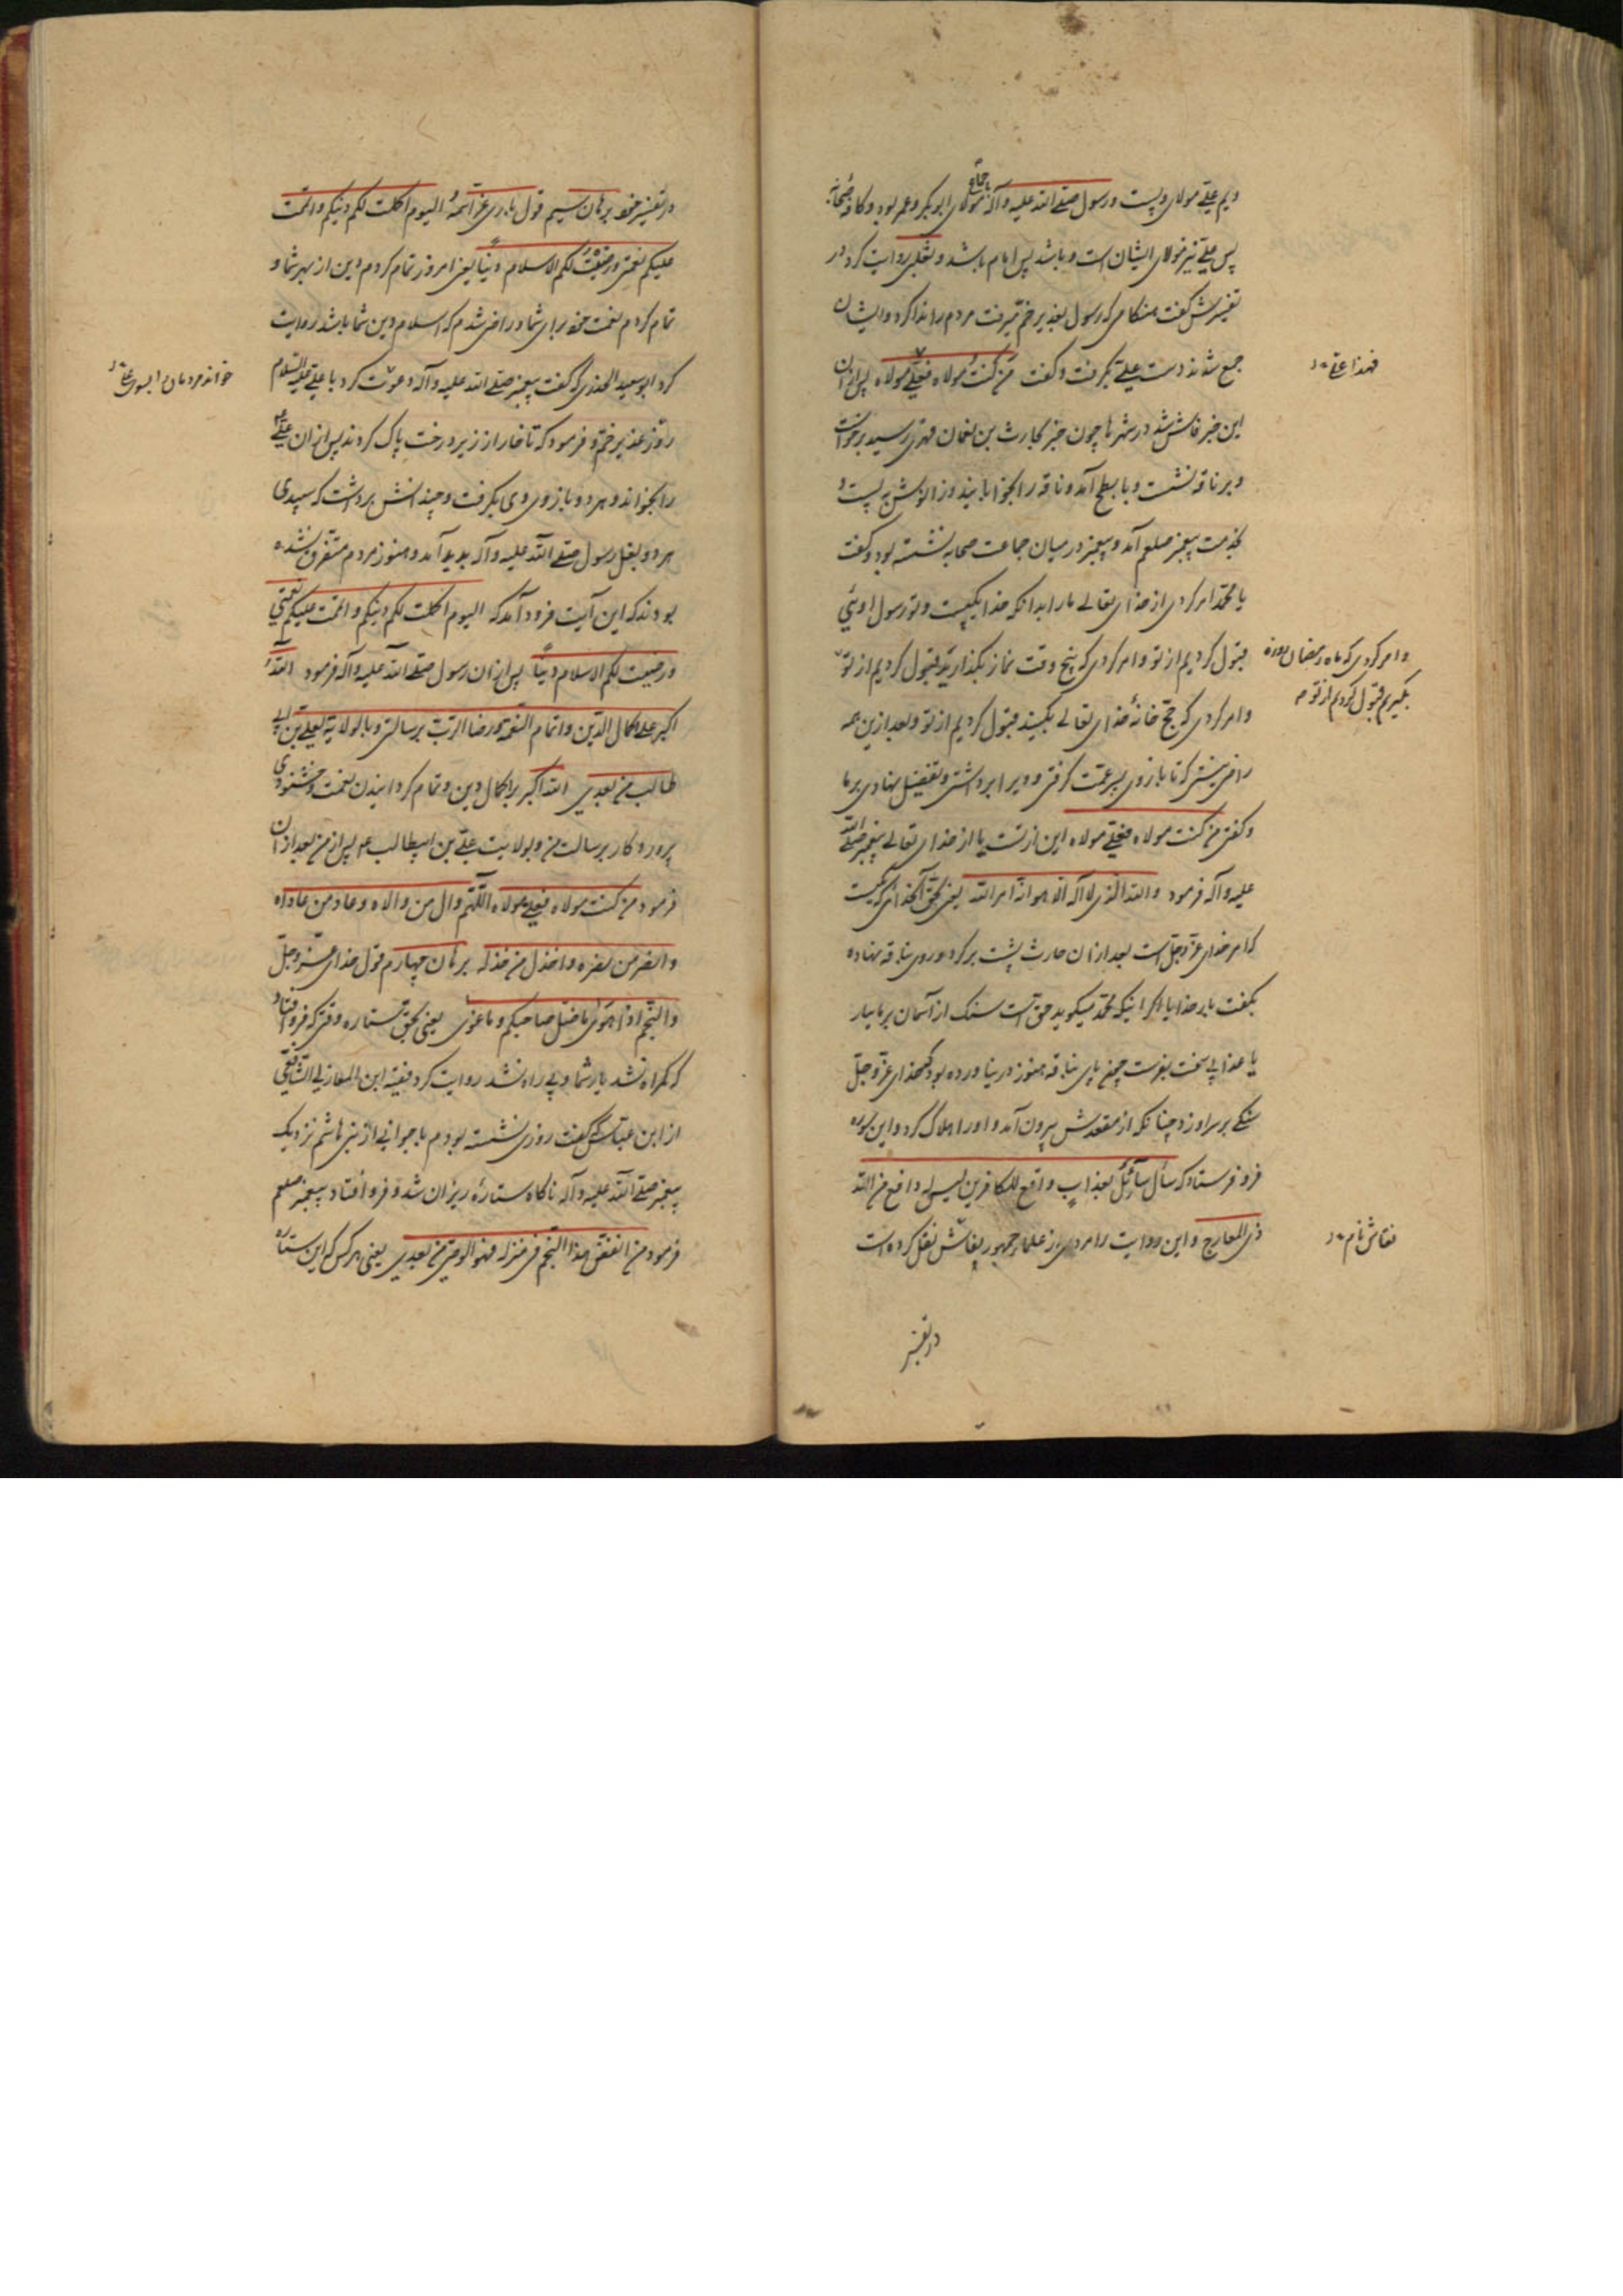 ویم علی مولای ویست و رسول صلی الله علیه و آله باجماع مولای ابوبکر و عمر بود و کافه صحابه
پس علی نیز مولای ایشان است و باشد پس امام باشد و ثعلبی روایت کرد در
تفسیرش گفت هنگامی که رسول بغدیر خم میرفت مردم را ندا کرد و ایشان
جمع شدند دست علی بگرفت و گفت من کنت مولاه فعلی مولاه پس از آن
فهذا علی
این خبر فاش شد در شهرها چون خبر بحارث بن نعمان فهری رسید برخواست
و بر ناقه نشست و بابطح آمد و ناقه را بخوابانید و زانوش به بست و
بخدمت پیغمبر صلعم آمد و پیغمبر در میان جماعت صحابه نشسته بود و گفت
یا محمد امر کردی از خدای تعالی ما را بدانکه خدا یکیست و تو رسول اوئی
قبول کردیم از تو و امر کردی که پنج وقت نماز بگذارید قبول کردیم از تو
و امر کردی که ماه رمضان روزه
بگیریم قبول کردیم از تو
و امر کردی که حج خانهٔ خدای تعالی بکنید قبول کردیم از تو و بعد ازین همه
راضی نیستی که تا بازوی پسر عمت گرفتی و ویرا برداشتی و تفضیل نهادی بر ما
و گفتی من کنت مولاه فعلی مولاه این از تست یا از خدای تعالی پیغمبر صلی الله
علیه و آله فرمود والله الذی لا اله الا هو انه امر الله یعنی بحق آنخدائی که نیست
که امر خدای عز و جل است بعد از آن حارث پشت بر کرد و روی بناقه نهاده
بگفت بار خدایا اگر اینکه محمد میگوید حق است سنگ از آسمان بر ما ببار
یا عذابی سخت بفرست چون پای بناقه هنوز در نیاورده بود که خدای عز و جل
سنگی بر سر او زد چنانکه از مقعدش بیرون آمد و او را هلاک کرد و این سوره
فرو فرستاد که سأل سائل بعذاب واقع للکافرین لیس له دافع من الله
ذی المعارج و این روایت را مردی از علماء جمهور نقاش نقل کرده است
نقاش نام
در تفسیر
در تفسیر خود برهان سیم قول باری عز اسمه الیوم اکملت لکم دینکم و اتممت
علیکم نعمتی و رضیت لکم الاسلام دینا یعنی امروز تمام کردم دین از بهر شما و
تمام کردم نعمت خود برای شما و راضی شدم که اسلام دین شما باشد روایت
کرد ابو سعید الخدری که گفت پیغمبر صلی الله علیه و آله دعوت کرد با علی علیه السلام
خواند مردمان را بسوی علی
روز غدیر خم و فرمود که تا خار از زیر درخت پاک کردند پس از آن علی
را بخواند و هر دو بازوی وی بگرفت و چندانش برداشت که سپیدی
هر دو بغل رسول صلی الله علیه و آله بدید آمد و هنوز مردم متفرق نشده
بودند که این آیت فرود آمد که الیوم اکملت لکم دینکم و اتممت علیکم نعمتی
و رضیت لکم الاسلام دینا پس از آن رسول صلی الله علیه و آله فرمود الله
اکبر علی اکمال الدین و اتمام النعمة و رضا الرب برسالتی و بالولایة لعلی بن ابی
طالب من بعدی الله اکبر باکمال دین و تمام گردانیدن نعمت و خشنودی
پروردگار برسالت من و بولایت علی بن ابیطالب پس از من بعد از آن
فرمود من کنت مولاه فعلی مولاه اللهم وال من والاه و عاد من عاداه
و انصر من نصره و اخذل من خذله برهان چهارم قول خدای عز و جل
والنجم اذا هوی ما ضل صاحبکم و ما غوی یعنی بحق ستاره وقتی که فرو افتاد
که گمراه نشد یار شما و بی راه نشد روایت کرد فقیه ابن المغازلی الشافعی
از ابن عباس که گفت روزی نشسته بودم با جوانی از بنی هاشم نزدیک
پیغمبر صلی الله علیه و آله ناگاه ستارهٔ ریزان شد و فرو افتاد پیغمبر صلعم
فرمود من انقض هذا النجم فی منزله فهو الوصی من بعدی یعنی هر کس که این ستاره